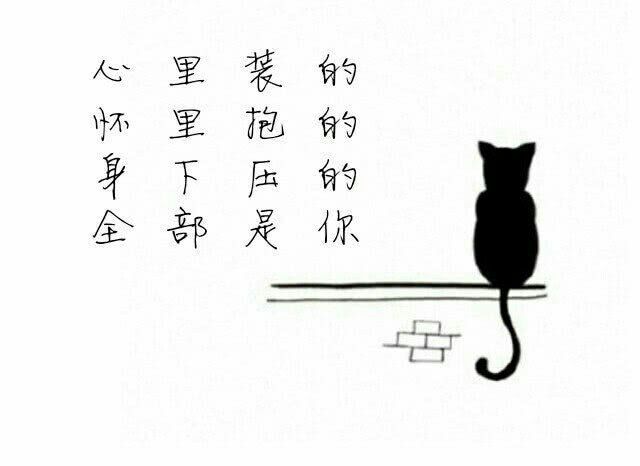 心里装的
怀里抱的
身下压的
全部是你